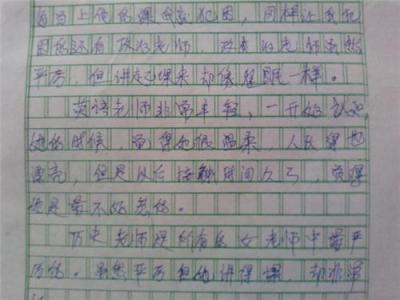 每当上他的课会犯困，同样让我犯
困的还有政治老师，政治老师虽然
平方，但讲起课来却像催眠一样。
英语老师非常年轻，一开始认识
她的时候，觉得她很温柔，人长得也
漂亮，但是以后接触时间久了，觉得
她是最不好惹的。
历史老师是所有的女老师中最严
厉的。虽然平方但她讲得课，却非常